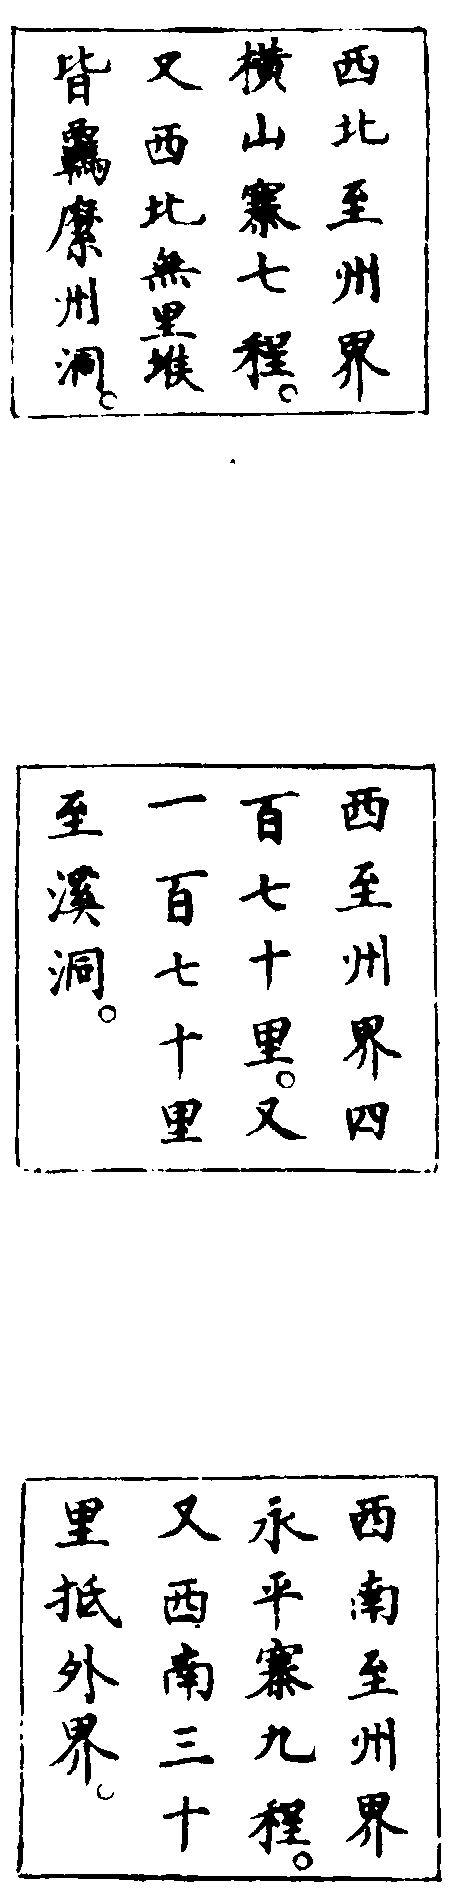 西北至州界
橫山寨七程。
又西北無里堠
皆羈縻州洞。
西至州界四
百七十里。又
一百七十里
至溪洞。
西南至州界
永平寨九程。
又西南三十
里抵外界。